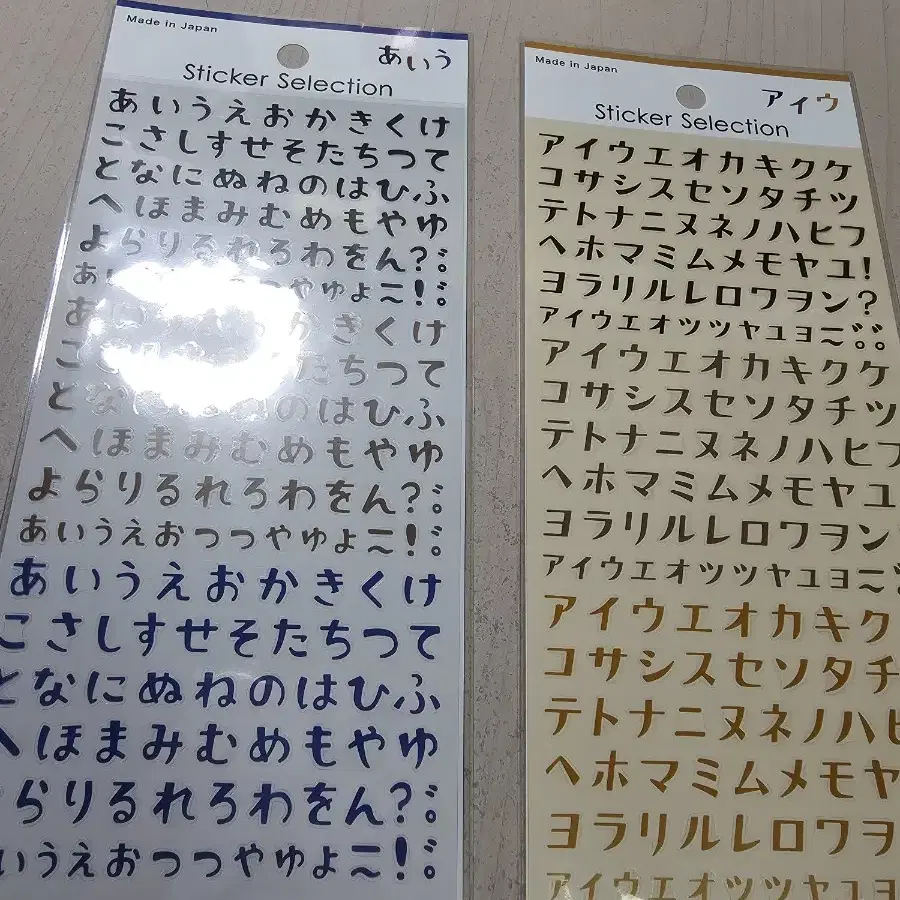 Made in Japan
あいう
Sticker Selection
あいうえおかきくけ
こさしすせそたちつて
となにぬねのはひふ
へほまみむめもやゆ
よらりるれろわをん?゛゜
あいつやゆょー~!゛゜
あかきくけ
こたちつて
となのはひふ
へほまみむめもやゆ
よらりるれろわをん?゛゜
あいうえおっつやゆょー~!゛゜
あいうえおかきくけ
こさしすせそたちつて
となにぬねのはひふ
へほまみむめもやゆ
らりるれろわをん?゛゜
いうえおっつやゆょー~!゛゜
Made in Japan
アイウ
Sticker Selection
アイウエオカキクケ
コサシスセソタチツ
テトナニヌネノハヒフ
ヘホマミムメモヤユ!
ヨラリルレロワヲン?
アイウエオツツヤユヨー~゛゜
アイウエオカキクケ
コサシスセソタチツ
テトナニヌネノハヒフ
ヘホマミムメモヤユ
ヨラリルレロワヲン
アイウエオツツヤユヨー~゛
アイウエオカキク
コサシスセソタチ
テトナニヌネノハヒ
ヘホマミムメモヤ
ヨラリルレロワヲ
アイウエオツツヤユヨ